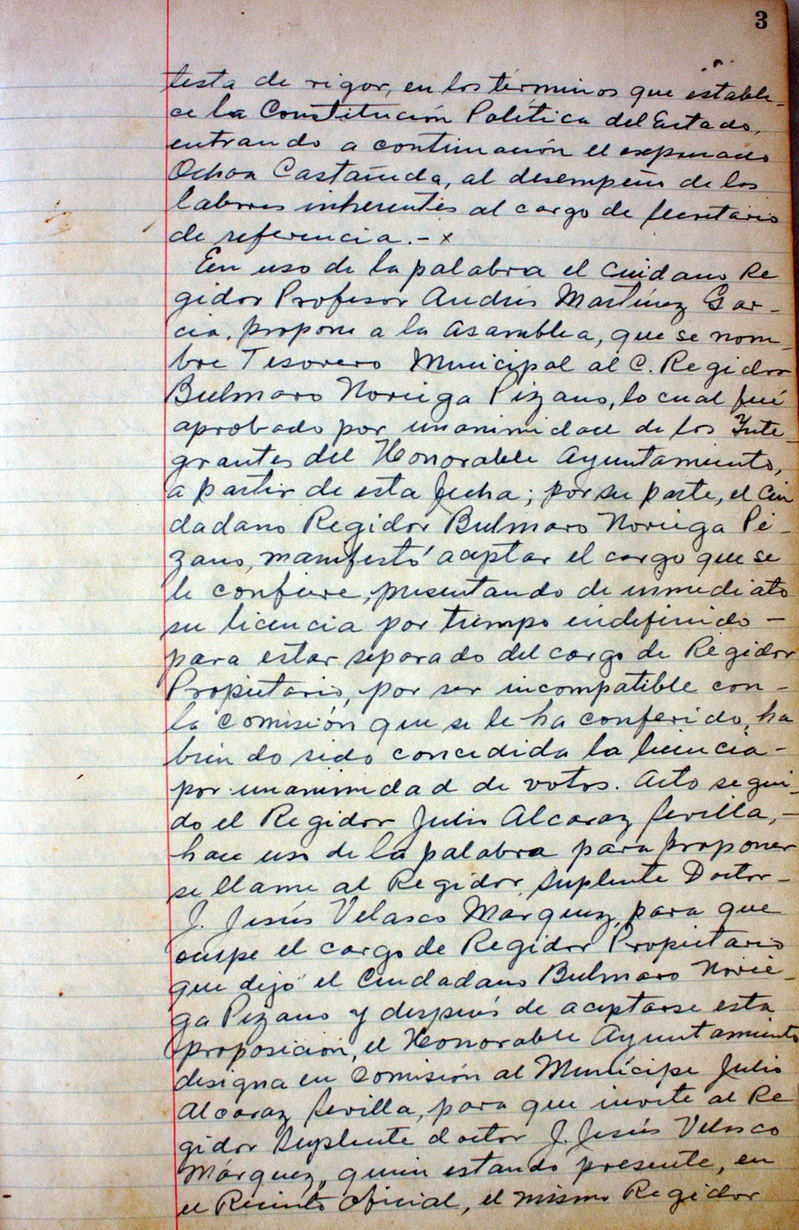 3
testa de rigor, en los términos que estable-
ce la Constitución Política del Estado,
entrando a continuación el expresado
Ochoa Castañeda, al desempeño de las
labores inherentes al cargo de Secretario
de referencia.- x
En uso de la palabra el Ciudano Re
gidor Profesor Andrés Martínez Gar-
cia, propone a la Asamblea, que se nom-
bre Tesorero Municipal al C. Regidor
Bulmaro Noriega Pizano, lo cual fué
aprobado por unanimidad de los Inte-
grantes del Honorable Ayuntamiento,
a partir de esta fecha; por su parte, el Ciu
dadano Regidor Bulmaro Noriega Pi-
zano, manifestó aceptar el cargo que se
le confiere, presentando de inmediato
su licencia por tiempo indefinido -
para estar separado del cargo de Regidor
Propietario, por ser incompatible con -
la comisión que se le ha conferido, ha
biendo sido concedida la licencia -
por unanimidad de votos. Acto segui-
do el Regidor Julio Alcaraz Sevilla, -
hace uso de la palabra para proponer
se llame al Regidor Suplente Doctor -
J. Jesús Velasco Marquez, para que
ocupe el cargo de Regidor Propietario
que dejó el Ciudadano Bulmaro Norie-
ga Pizano y después de aceptarse esta
proposición, el Honorable Ayuntamiento
designa en Comisión al Munícipe Julio
Alcaraz Sevilla, para que invite al Re
gidor Suplente doctor J. Jesús Velasco
Márquez, quien estando presente, en
el Recinto Oficial, el mismo Regidor